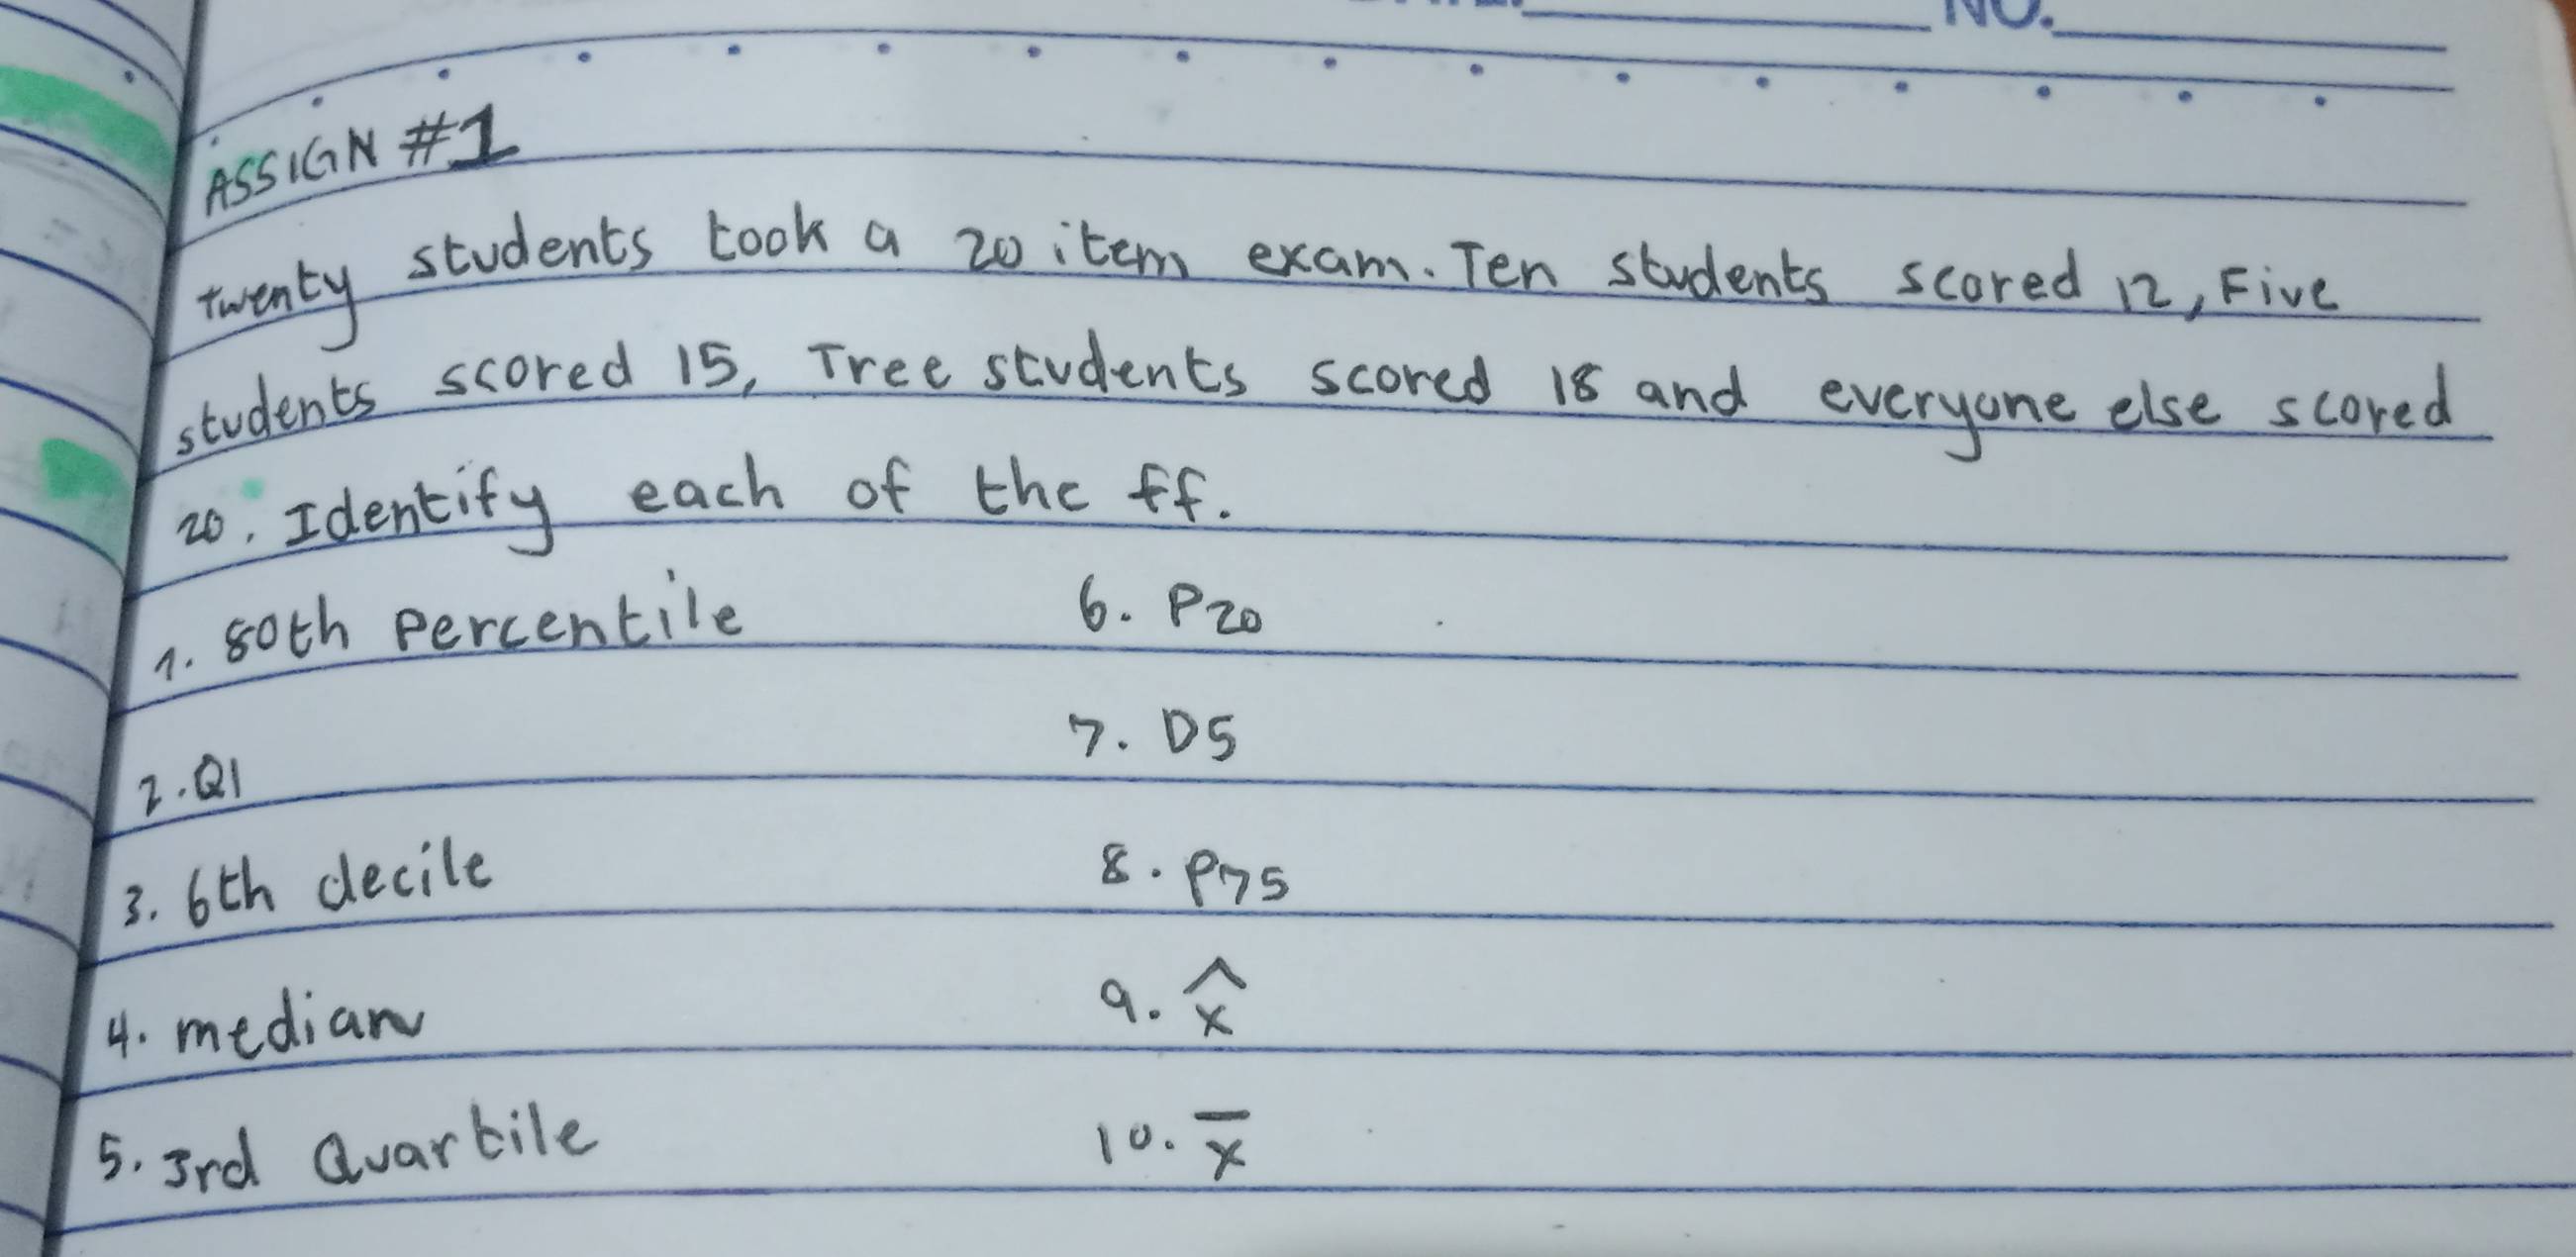 NO.
ASSIGN #1
Twenty students took a 20 item exam. Ten students scored 12, Five
students scored 15, Tree students scored 18 and everyone else scored
20. Identify each of the ff.
1. 80th percentile
6. P20
2. Q1
7. D5
3. 6th decile
8. P75
4. median
9. x̂
5. 3rd Quartile
10. x̄